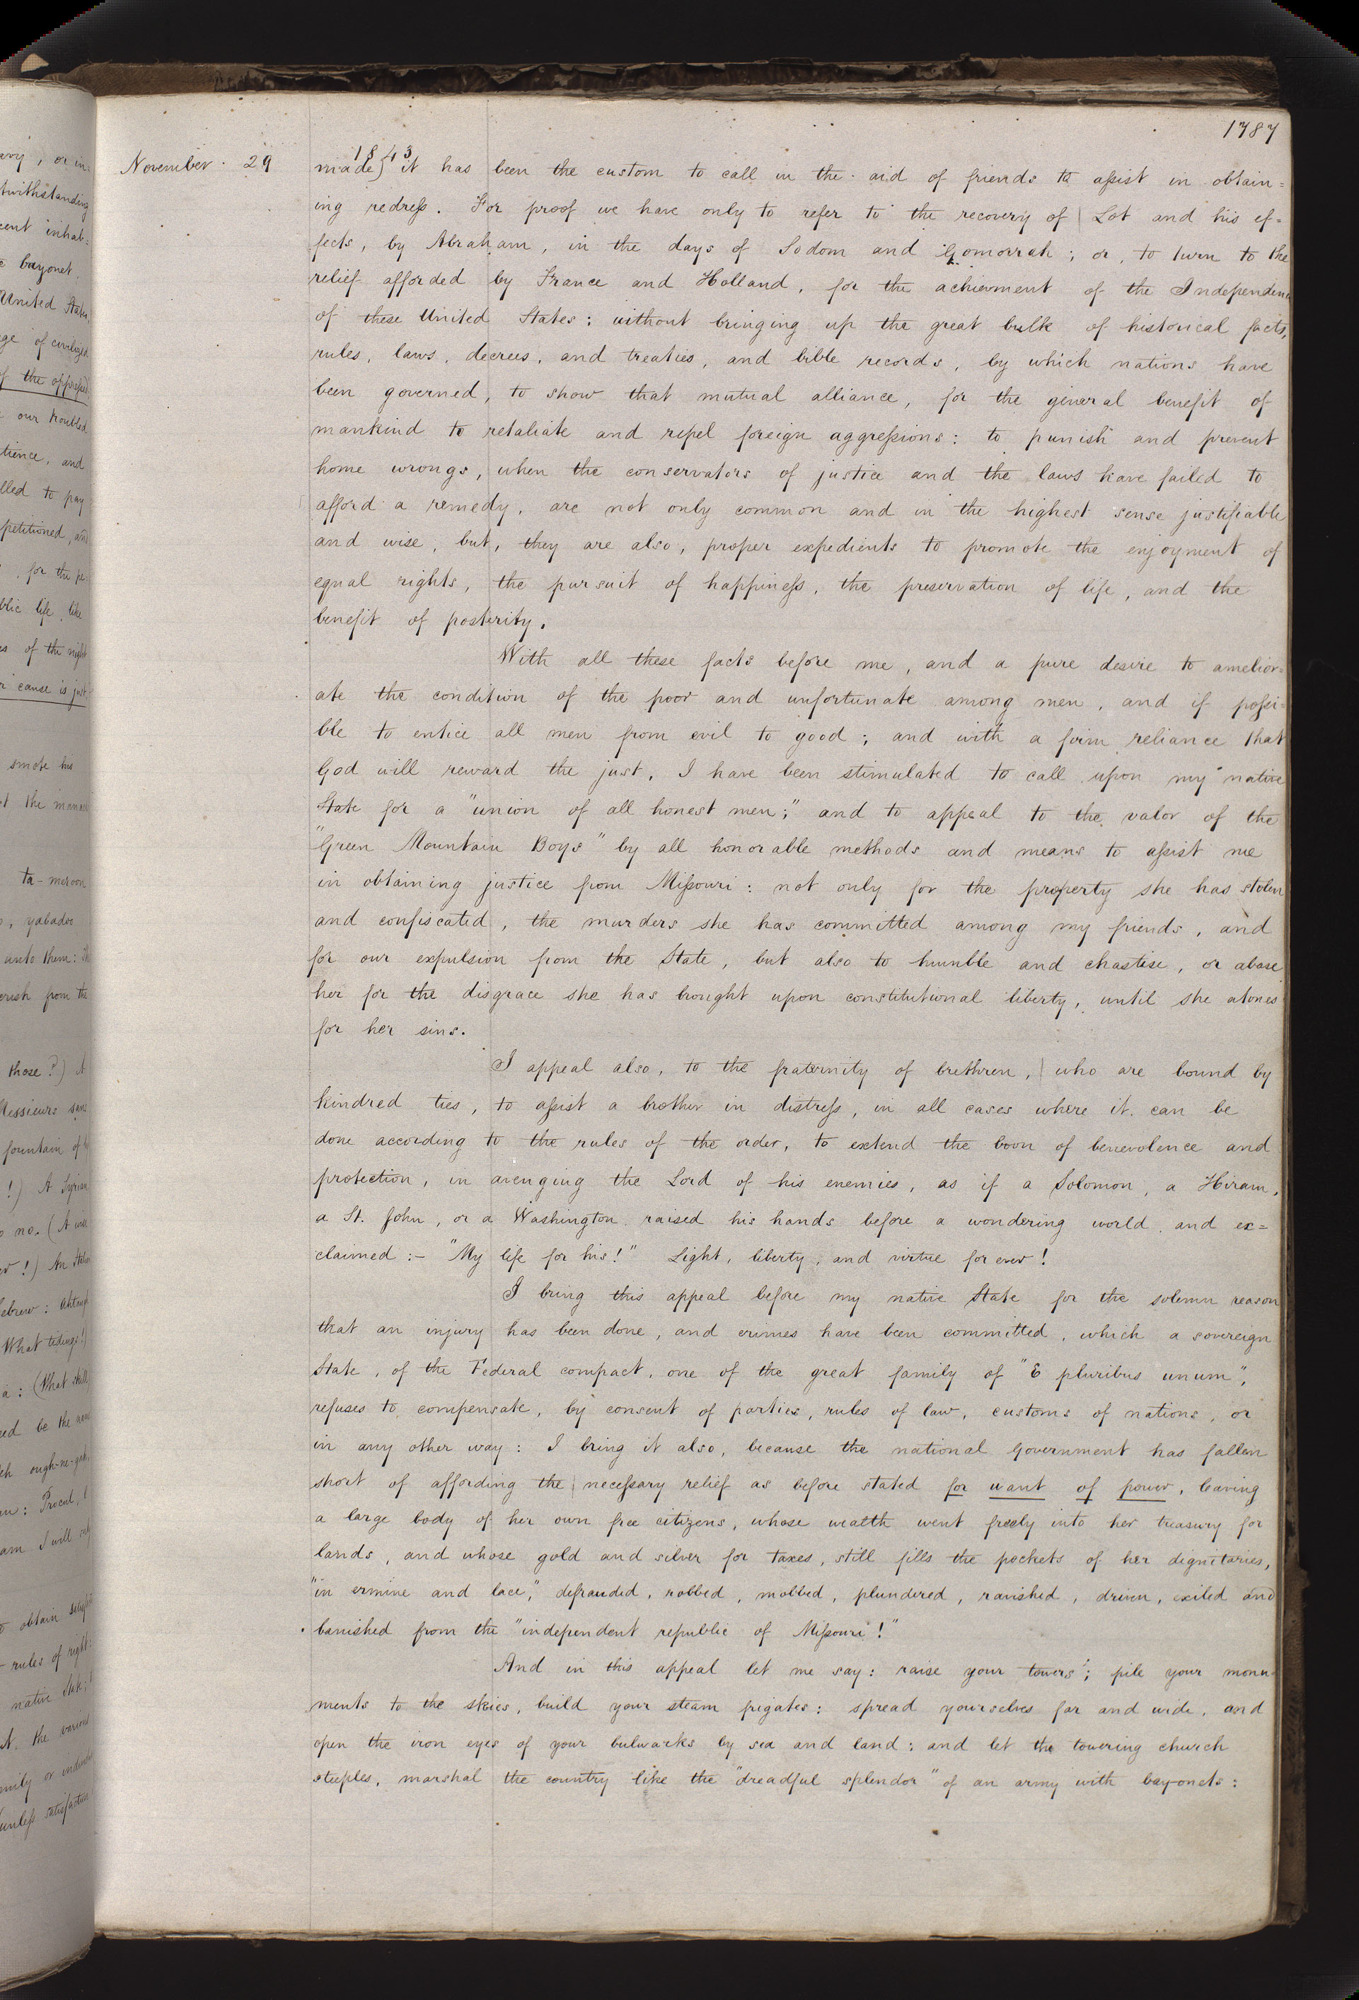 1787
1843
November 29 made) it has been the custom to call in the aid of friends to assist in obtain=
ing redress. For proof we have only to refer to the recovery of Lot and his ef=
fects, by Abraham, in the days of Sodom and Gomorrah; or, to turn to the
relief afforded by France and Holland, for the achievment of the Independence
of these United States: without bringing up the great bulk of historical facts,
rules, laws, decrees, and treaties, and bible records, by which nations have
been governed, to show that mutual alliance, for the general benefit of
mankind to retaliate and repel foreign aggressions: to punish and prevent
home wrongs, when the conservators of justice and the laws have failed to
afford a remedy, are not only common and in the highest sense justifiable
and wise, but, they are also, proper expedients to promote the enjoyment of
equal rights, the pursuit of happiness, the preservation of life, and the
benefit of posterity.
With all these facts before me, and a pure desire to amelior=
ate the condition of the poor and unfortunate among men, and if possi=
ble to entice all men from evil to good; and with a firm reliance that
God will reward the just, I have been stimulated to call upon my native
State for a "union of all honest men;" and to appeal to the valor of the
"Green Mountain Boys" by all honorable methods and means to assist me
in obtaining justice from Missouri: not only for the property she has stolen
and confiscated, the murders she has committed among my friends, and
for our expulsion from the State, but also to humble and chastise, or abase
her for the disgrace she has brought upon constitutional liberty, until she atones
for her sins.
I appeal also, to the fraternity of brethren, who are bound by
kindred ties, to assist a brother in distress, in all cases where it can be
done according to the rules of the order, to extend the boon of benevolence and
protection, in avenging the Lord of his enemies, as if a Solomon, a Hiram,
a St. John, or a Washington raised his hands before a wondering world and ex=
claimed:- "My life for his!" Light, liberty, and virtue for ever!
I bring this appeal before my native State for the solemn reason
that an injury has been done, and crimes have been committed, which a sovereign
State, of the Federal compact, one of the great family of "E pluribus unum",
refuses to compensate, by consent of parties, rules of law, customs of nations, or
in any other way: I bring it also, because the national Government has fallen
short of affording the necessary relief as before stated for want of power, leaving
a large body of her own free citizens, whose wealth went freely into her treasury for
lands, and whose gold and silver for taxes, still fills the pockets of her dignitaries,
"in ermine and lace," defrauded, robbed, mobbed, plundered, ravished, driven, exiled and
banished from the "independent republic of Missouri!"
And in this appeal let me say: raise your towers; pile your monu
ments to the skies, build your steam frigates: spread yourselves far and wide, and
open the iron eyes of your bulwarks by sea and land: and let the towering church
steeples, marshal the country like the "dreadful splendor" of an army with bayonets: